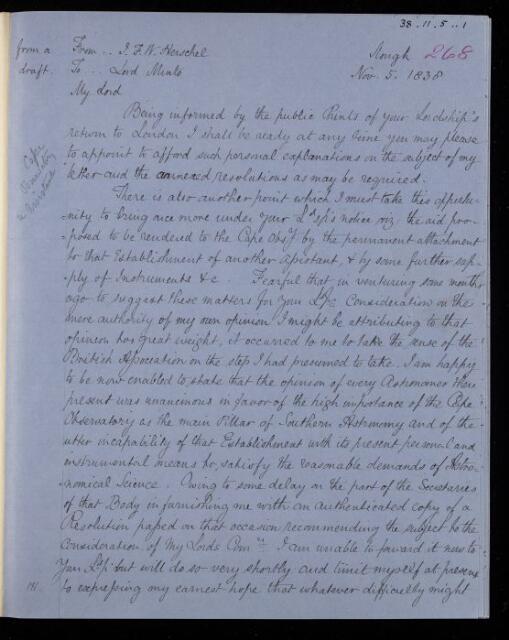 38-11-5-1
from a From... J.F.W. Herschel Slough 268
draft. To... Lord Minto Nov. 5. 1838
My Lord
Being informed by the public Prints of your Lordship's
return to London I shall be ready at any time you may please
to appoint to afford such personal explanations on the subject of my
letter and the annexed resolutions as may be required.
There is also another point which I must take this opportu-
=nity to bring once more under your Ldshp's notice viz. the aid pro-
=posed to be rendered to the Cape Obsy by the permanent attachment
to that Establishment of another Assistant, & by some further sup-
=ply of Instruments &c. Fearful that in venturing some months
ago to suggest these matters for your Lp's Consideration on the
mere authority of my own opinion I might be attributing to that
opinion too great weight, it occurred to me to take the sense of the
British Association on the step I had presumed to take. I am happy
to be now enabled to state that the opinion of every Astronomer there
present was unanimous in favor of the high importance of the Cape
Observatory as the main Pillar of Southern Astronomy and of the
utter incapability of that Establishment with its present personal and
instrumental means to satisfy the reasonable demands of Astro-
=nomical Science. Owing to some delay on the part of the Secretaries
of that Body in furnishing me with an authenticated copy of a
Resolution passed on that occasion recommending the subject to the
Consideration of My Lords Comrs I am unable to forward it now to
Your Lp but will do so very shortly and limit myself at present
to expressing my earnest hope that whatever difficulty might
Cape
Observatory
&
Assistance